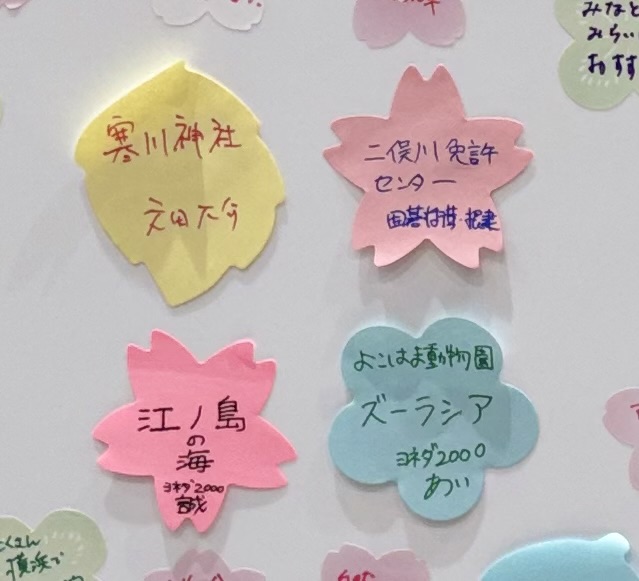 みなと
みらい
おすす
寒川神社
二俣川免許
センター
江ノ島
の
海
ヨネダ2000
誠
よこはま動物園
ズーラシア
ヨネダ2000
あい
横浜で